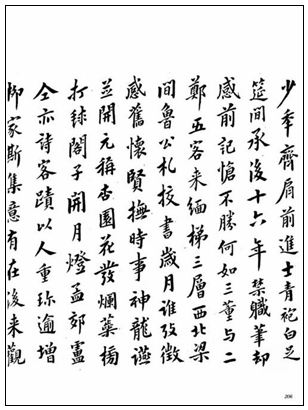 少年齊肩前進士青袍白芝
筵間承後十六年禁職筆却
感前記愴不勝何如三董与二
鄭五客来緬梯三層西北梁
間魯公札挍書歲月誰攷徵
感舊懷賢撫時事神龍讌
並開元稱杏園花發爛蘂榜
打毬閣子開月燈孟郊盧
仝亦诗客蹟以人重珎逾增
柳家斯集意有在後来觀
206